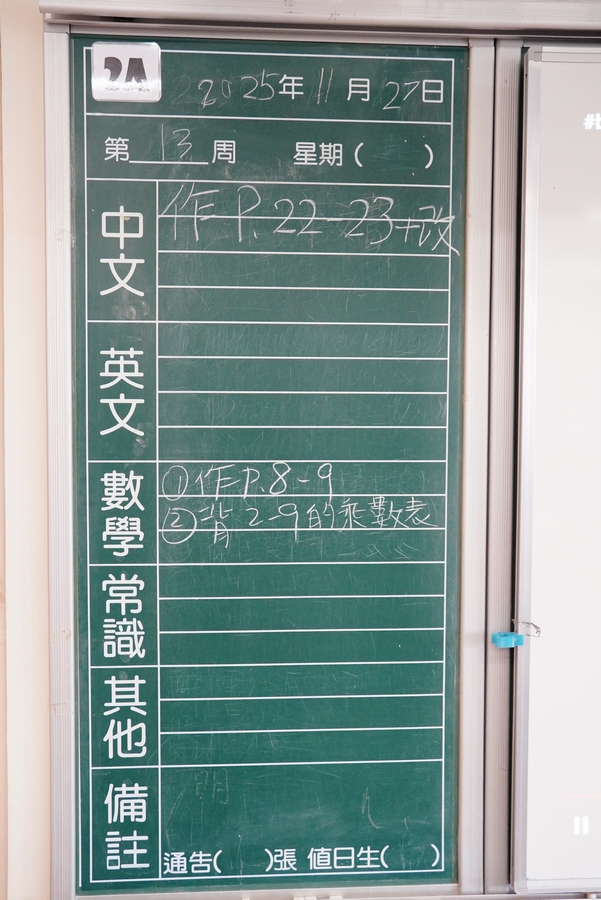 2A
2025年11月27日
第13周 星期( )
中文
作 P. 22-23+改
英文
數學
①作P.8-9
②背 2-9的乘數表
常識
其他
備註
通告( )張 值日生( )